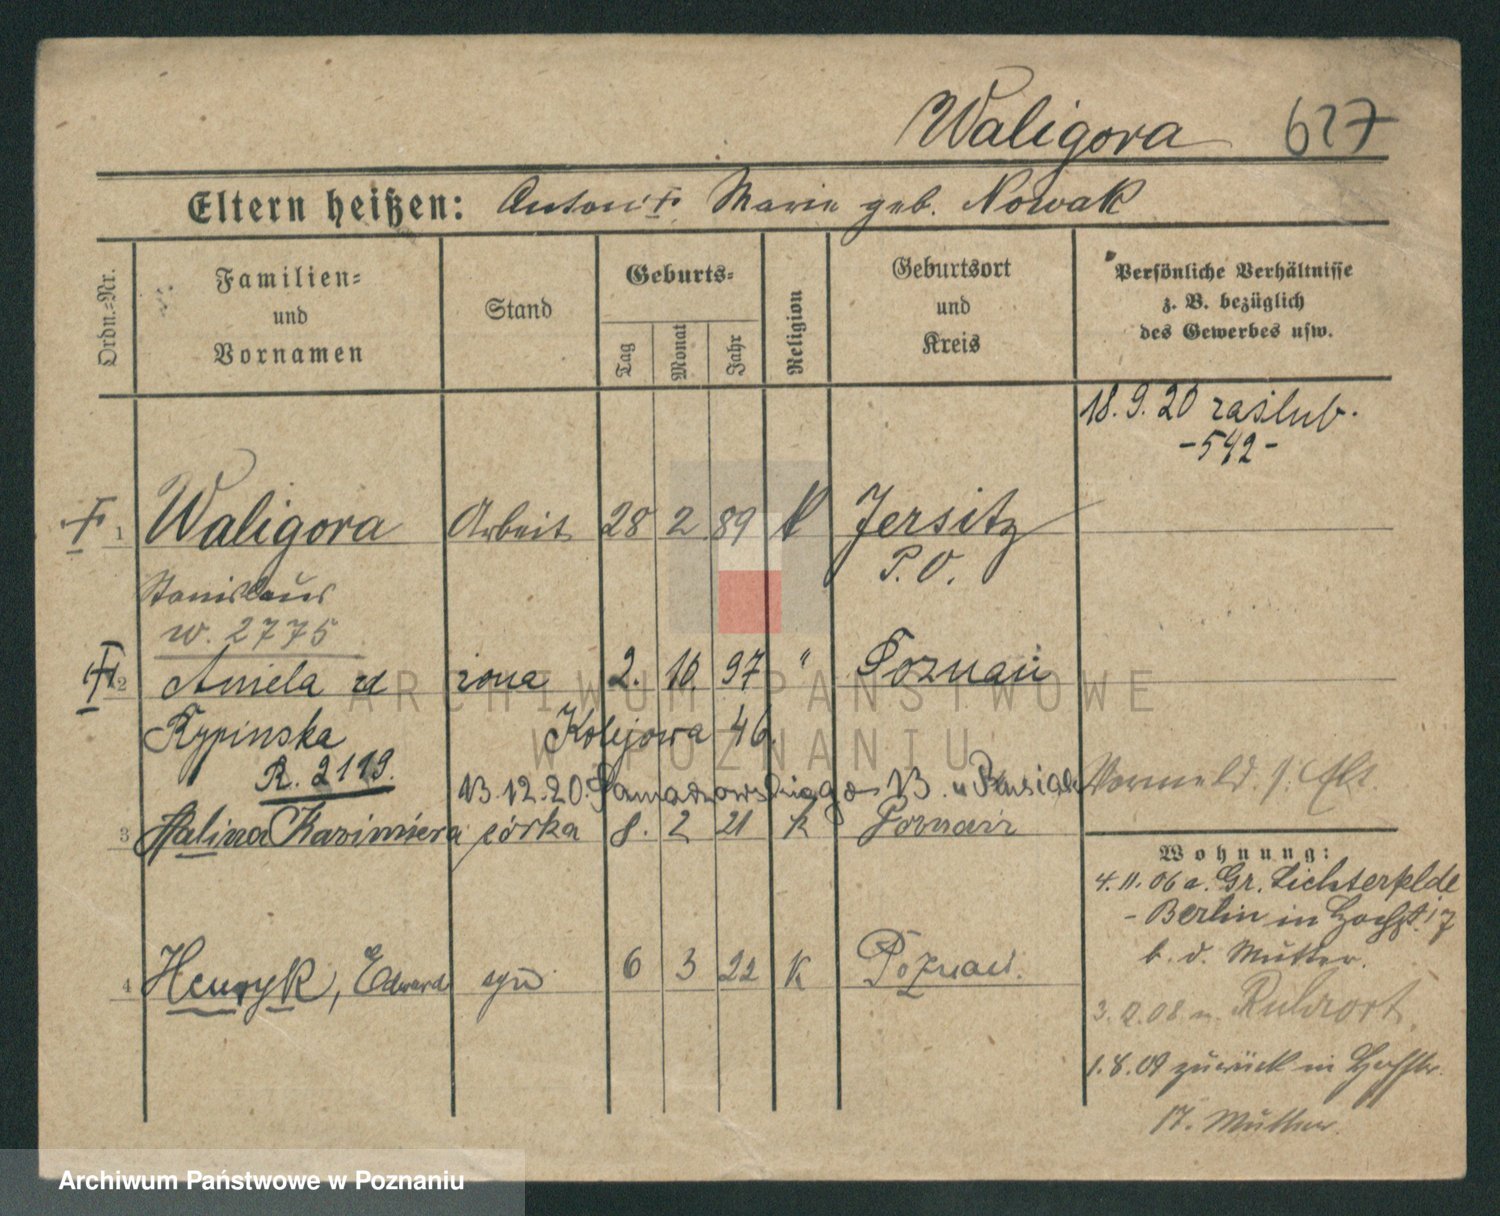 Waligora 627
Eltern heißen: Anton Marie geb. Nowak
Ordn.-Nr.
Familien- und Vornamen
Stand
Geburts-
Tag
Monat
Jahr
Religion
Geburtsort und Kreis
Persönliche Verhältnisse
z. B. bezüglich
des Gewerbes usw.
18. 9. 20 zaślub.
-542-
1 Waligora Arbeit 28 2 89 k Jersitz
P. O.
Stanislaus
w. 2775
2 Aniela zd żona 2. 10. 97 " Poznań
Rypinska Kolejowa 46
R. 2119.
13. 12. 20.
3 Halina Kazimiera córka 8. 2 21 k Poznań
4 Henryk, Edward syn 6 3 22 k Poznań.
Wohnung:
4. 11. 06 a. Gr. Lichterfelde
- Berlin in 17
b. d. Mutter.
3. 2. 08 n. Ruhrort
1. 8. 09 zurück in
17. Mutter.
ARCHIWUM PAŃSTWOWE
W POZNANIU
Archiwum Państwowe w Poznaniu